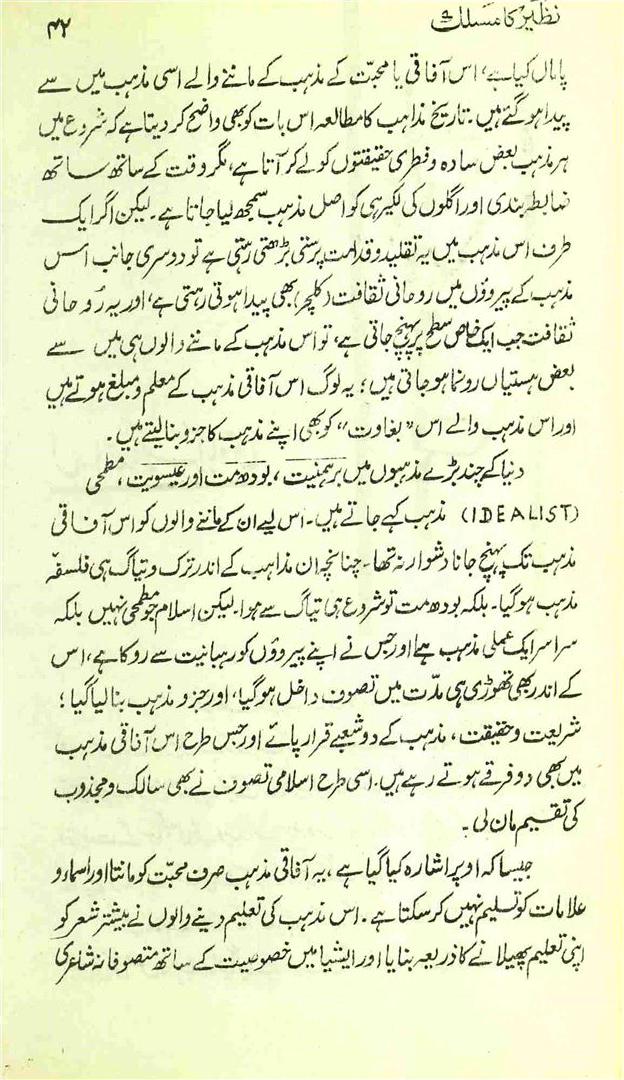 نظیر کا مسلک
۴۲
پامال کیا ہے، اس آفاقی یا محبّت کے مذہب کے ماننے والے اسی مذہب میں سے
پیدا ہو گئے ہیں۔ تاریخ مذاہب کا مطالعہ اس بات کو بھی واضح کر دیتا ہے کہ شروع میں
ہر مذہب بعض سادہ و فطری حقیقتوں کو لے کر آتا ہے، مگر وقت کے ساتھ ساتھ
ضابطہ بندی اور اگلوں کی لکیر ہی کو اصل مذہب سمجھ لیا جاتا ہے۔ لیکن اگر ایک
طرف اس مذہب میں یہ تقلید و قدامت پرستی بڑھتی رہتی ہے تو دوسری جانب اس
مذہب کے پیروؤں میں روحانی ثقافت (کلچر) بھی پیدا ہوتی رہتی ہے، اور یہ رُوحانی
ثقافت جب ایک خاص سطح پر پہنچ جاتی ہے، تو اس مذہب کے ماننے والوں ہی میں سے
بعض ہستیاں رونما ہو جاتی ہیں؛ یہ لوگ اس آفاقی مذہب کے معلم و مبلغ ہوتے ہیں
اور اس مذہب والے اس "بغاوت" کو بھی اپنے مذہب کا جزو بنا لیتے ہیں۔
دنیا کے چند بڑے مذہبوں میں برہمنیت، بودھ مت اور عیسویت، مطمحی
(IDEALIST) مذہب کہے جاتے ہیں۔ اس لیے ان کے ماننے والوں کو اس آفاقی
مذہب تک پہنچ جانا دشوار نہ تھا۔ چنانچہ ان مذاہب کے اندر ترک و تیاگ ہی فلسفہ
مذہب ہو گیا۔ بلکہ بودھ مت تو شروع ہی تیاگ سے ہوا۔ لیکن اسلام جو مطمحی نہیں بلکہ
سراسر ایک عملی مذہب ہے اور جس نے اپنے پیروؤں کو رہبانیت سے روکا ہے، اس
کے اندر بھی تھوڑی ہی مدّت میں تصوف داخل ہو گیا، اور جزو مذہب بنا لیا گیا؛
شریعت و حقیقت، مذہب کے دو شعبے قرار پائے اور جس طرح اس آفاقی مذہب
میں بھی دو فرقے ہوتے رہے ہیں۔ اسی طرح اسلامی تصوف نے بھی سالک و مجذوب
کی تقسیم مان لی۔
جیسا کہ اوپر اشارہ کیا گیا ہے، یہ آفاقی مذہب صرف محبّت کو مانتا اور اسماء و
علامات کو تسلیم نہیں کر سکتا ہے۔ اس مذہب کی تعلیم دینے والوں نے بیشتر شعر کو
اپنی تعلیم پھیلانے کا ذریعہ بنایا اور ایشیا میں خصوصیت کے ساتھ متصوفانہ شاعری